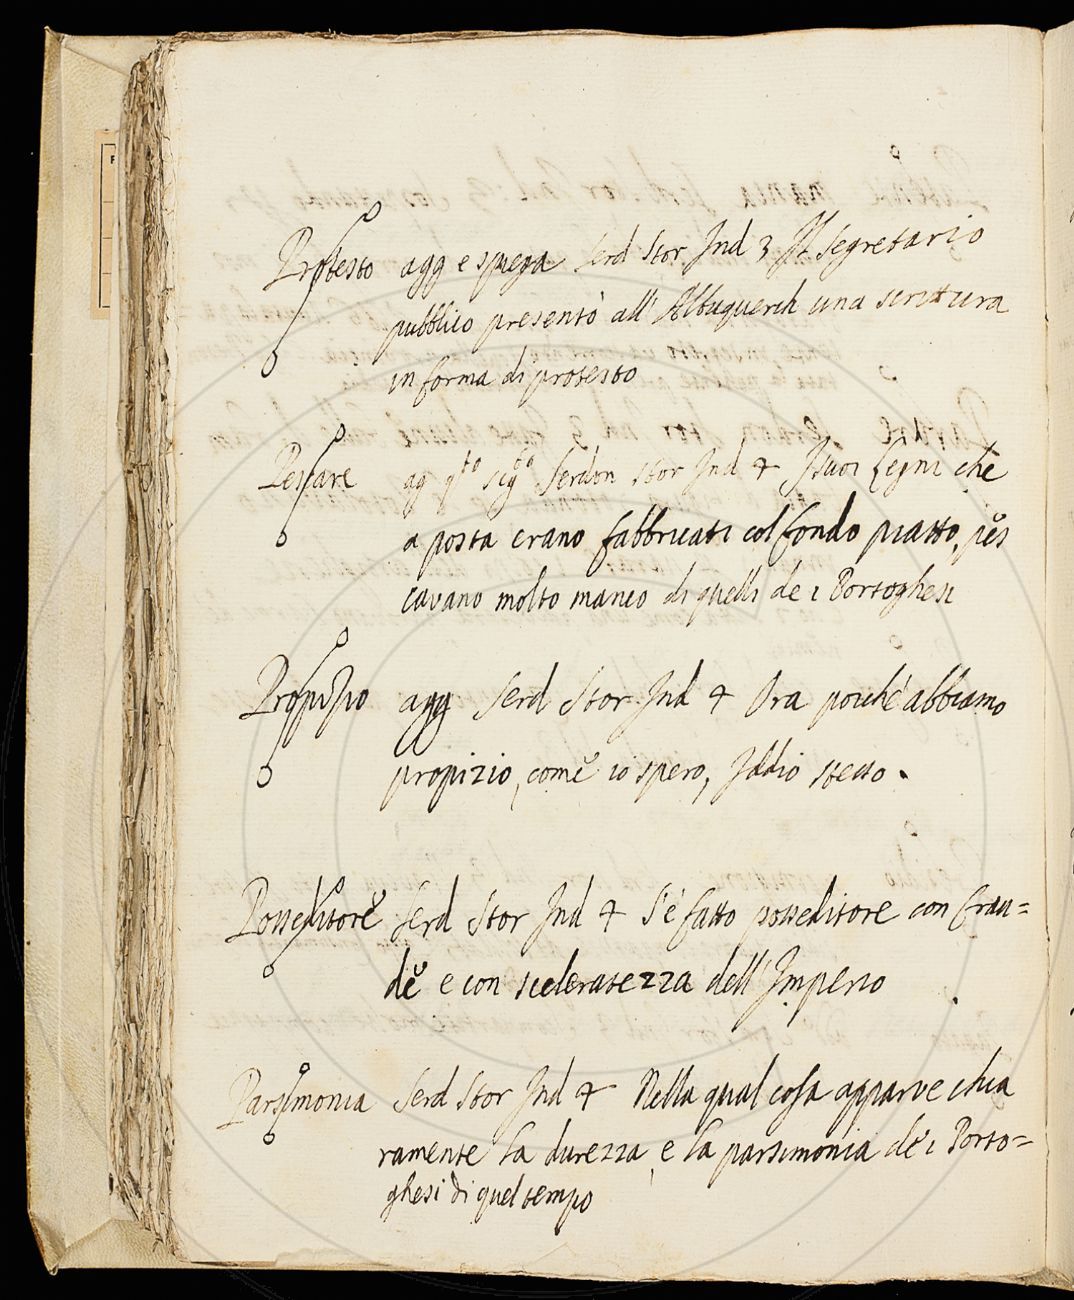 Protesto agg e spiega Serd Stor Ind 3 Il Segretario
pubblico presentò all' Albuquerch una scrittura
in forma di protesto
Pescare ag qto sigto Serdon Stor Ind 4 I suoi Legni che
a posta erano fabbricati col fondo piatto, pes
cavano molto manco di quelli de i Portoghesi
Propizio agg Serd Stor Ind 4 Ora poiché abbiamo
propizio, come io spero, Iddio stesso.
Posseditore Serd Stor Ind 4 S'è fatto posseditore con frau=
de e con sceleratezza dell'Imperio
Parsimonia Serd Stor Ind 4 Nella qual cosa apparve chia
ramente la durezza, e la parsimonia de i Porto=
ghesi di quel tempo